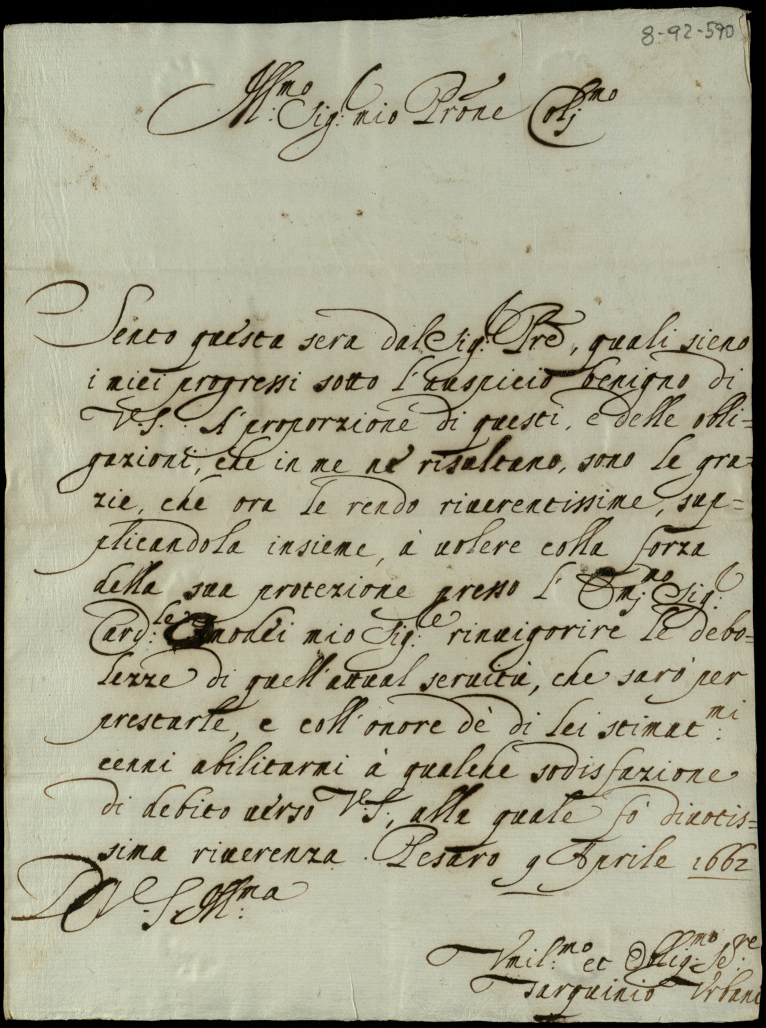 8-92-590
Ill:mo Sig:r mio Prone Col:mo
Sento questa sera dal Sig:r Pre, quali sieno
i miei progressi sotto l'auspicio benigno di
V.S. A' proporzione di questi, e delle obli=
gazioni, che in me ne risultano, sono le gra=
zie, che ora le rendo riuerentissime, sup=
plicandola insieme, à uolere colla forza
della sua protezione presso l' Em:mo Sig:r
Card:le Omodei mio Sig:re rinuigorire le debo=
lezze di quell'attual seruitù, che sarò per
prestarle, e coll'onore de' di lei stimat:mi
cenni abilitarmi à qualche sodisfazione
di debito uerso V.S., alla quale fò diuotis=
sima riuerenza. Pesaro 9 Aprile 1662
D V.S. Ill:ma
Vmil:mo et Oblig:mo Se:re
Tarquinio Vrbani